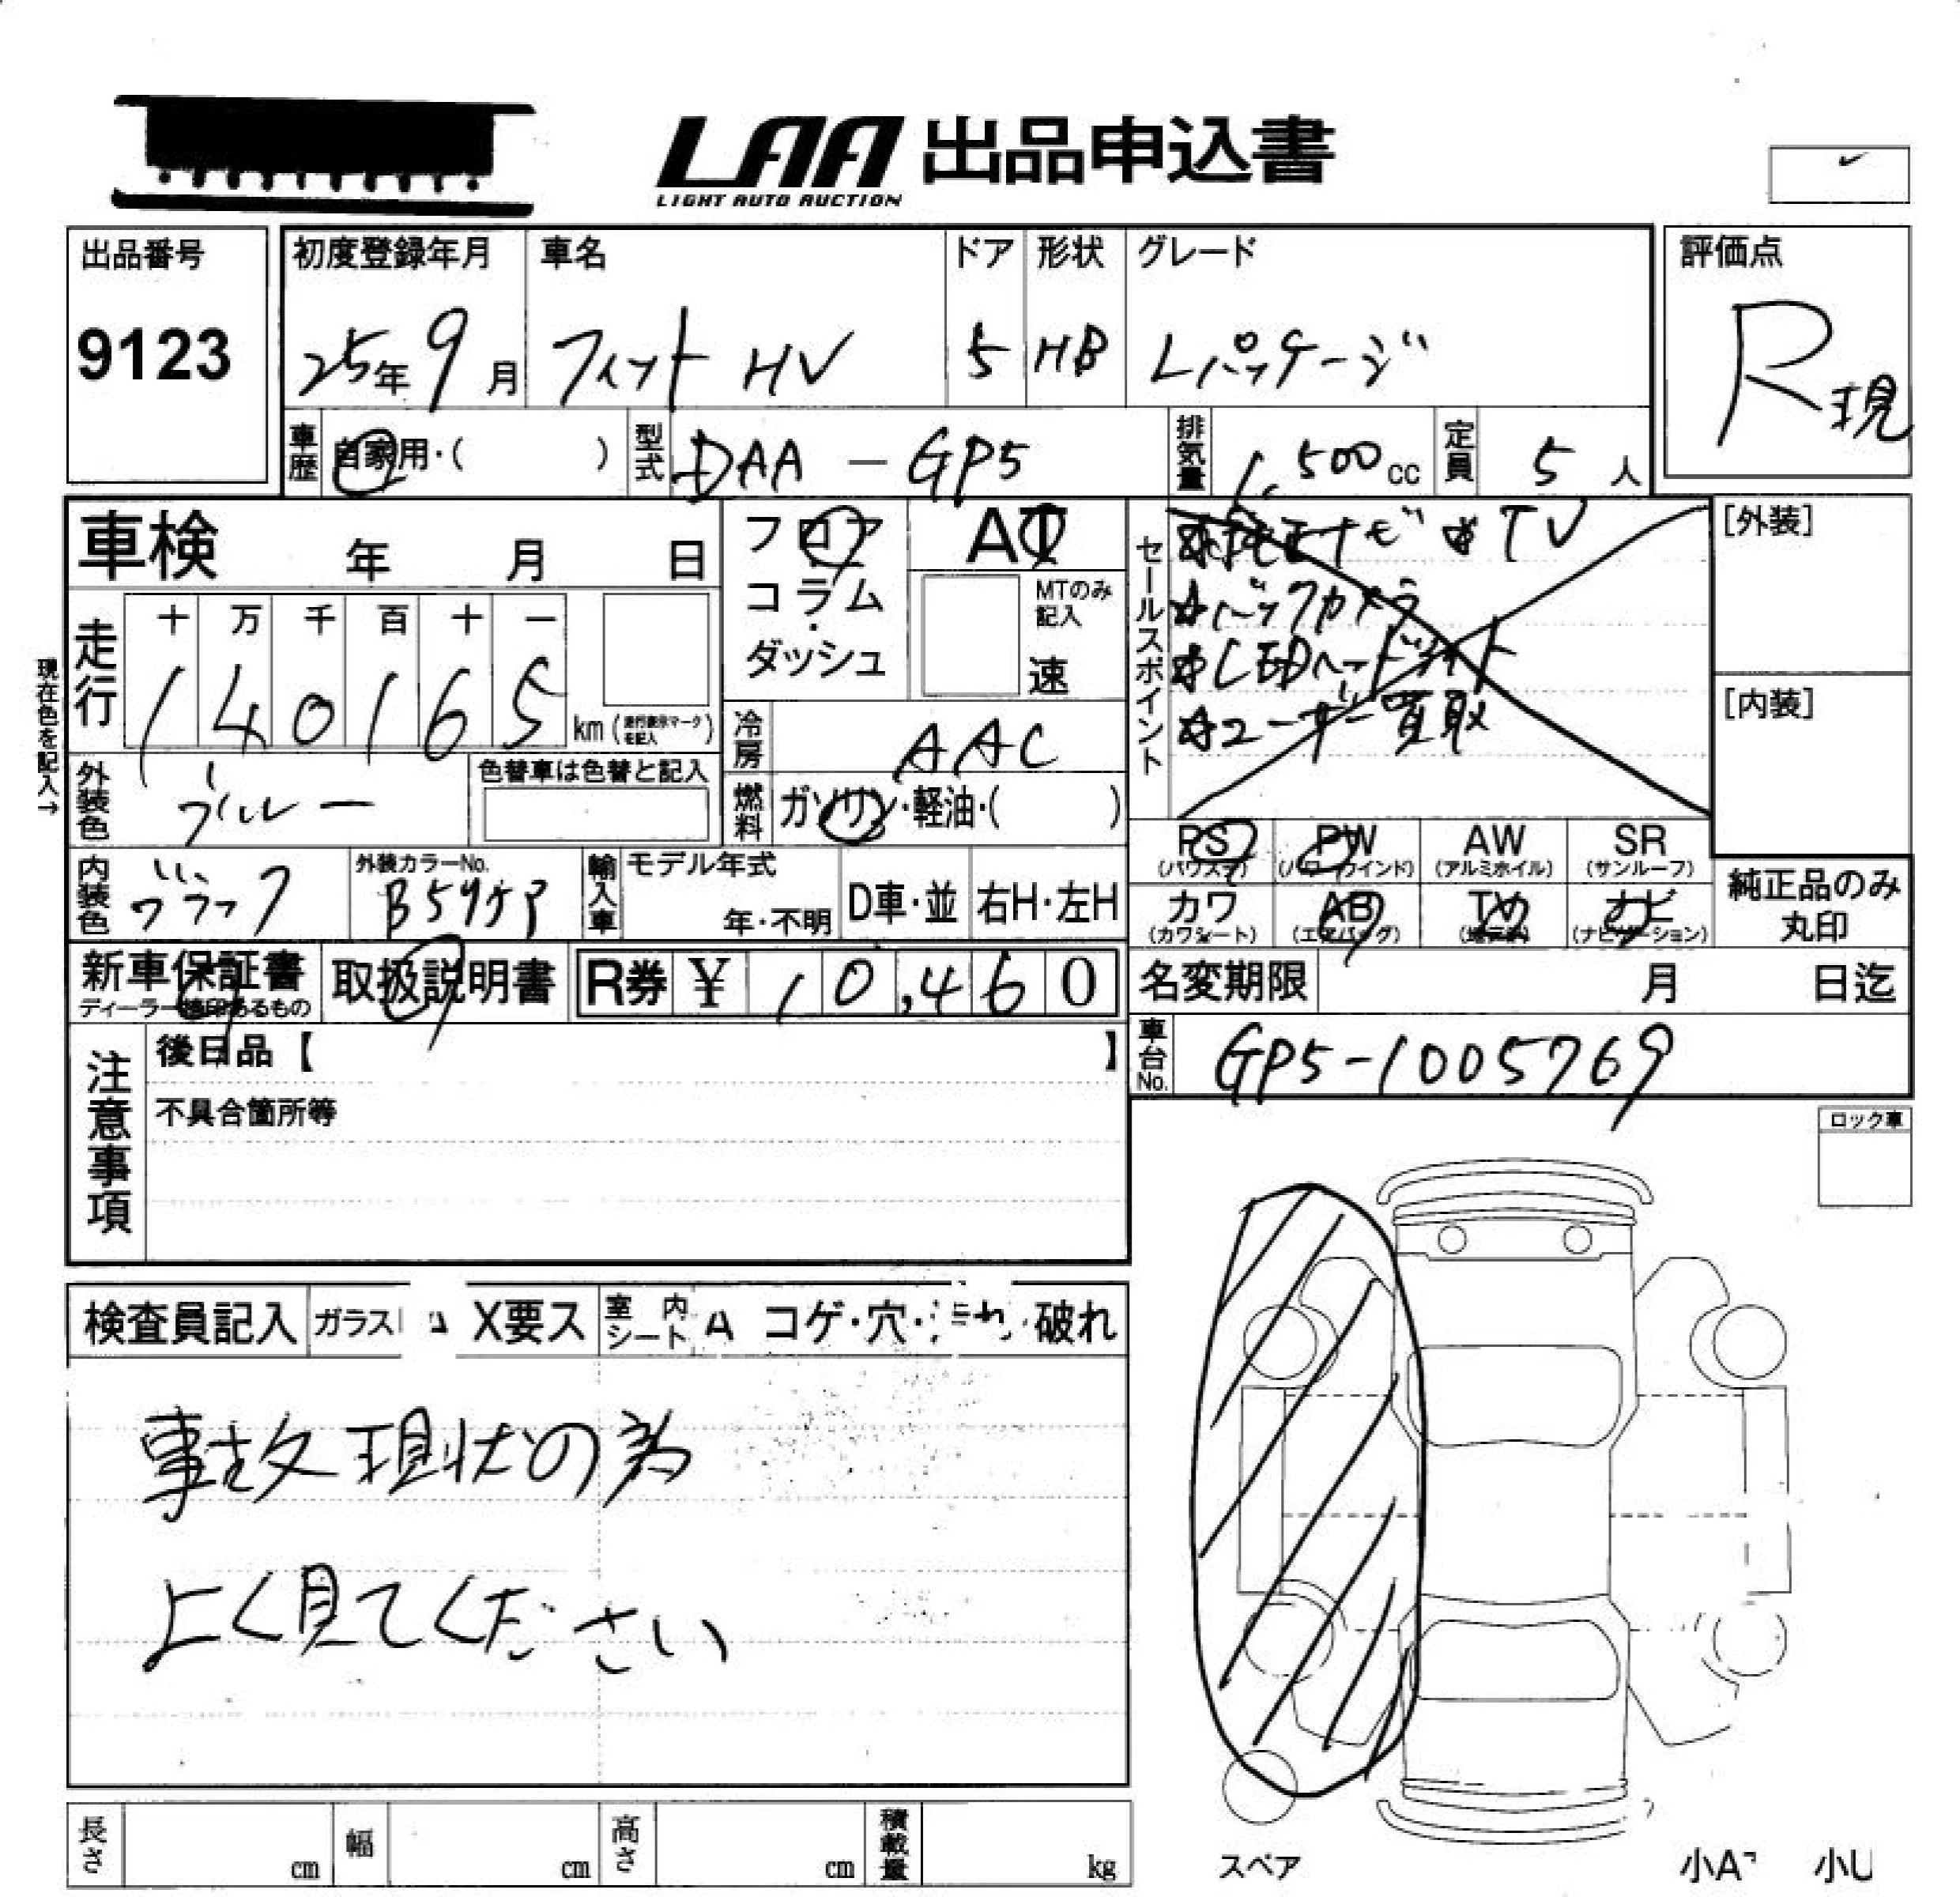 LAA 出品申込書
LIGHT AUTO AUCTION
出品番号
9123
初度登録年月
25年9月
車名
フィット HV
ドア
5
形状
HB
グレード
Lパッケージ
評価点
R現
車歴
自家用・( )
型式
DAA - GP5
排気量
1,500cc
定員
5人
車検 年 月 日
フロア
コラム
・
ダッシュ
AT
MTのみ
記入
速
セールスポイント
TV
☆バックカメラ
☆LEDヘッドライト
☆ユーザー買取
[外装]
[内装]
現在色を記入→
走行
十 万 千 百 十 一
1 4 0 1 6 5
km (走行表示マークを記入)
冷房
AAC
外装色
ブルー
色替車は色替と記入
燃料
ガソリン・軽油・( )
内装色
ブラック
外装カラーNo.
輸入車
モデル年式
年・不明
D車・並
右H・左H
PS
(パワステ)
PW
(パワーウインド)
AW
(アルミホイル)
SR
(サンルーフ)
カワ
(カワシート)
AB
(エアバッグ)
TV
ナビ
(ナビゲーション)
純正品のみ
丸印
新車保証書
ディーラー捺印あるもの
取扱説明書
R券 ¥ 10,460
名変期限 月 日迄
注意事項
後日品【 】
不具合箇所等
車台No.
GP5-1005769
ロック車
検査員記入
ガラス
X要ス
室内シート
A コゲ・穴・ 破れ
事故現状の為
よく見てください
長さ cm
幅 cm
高さ cm
積載量 kg
スペア
小A
小U